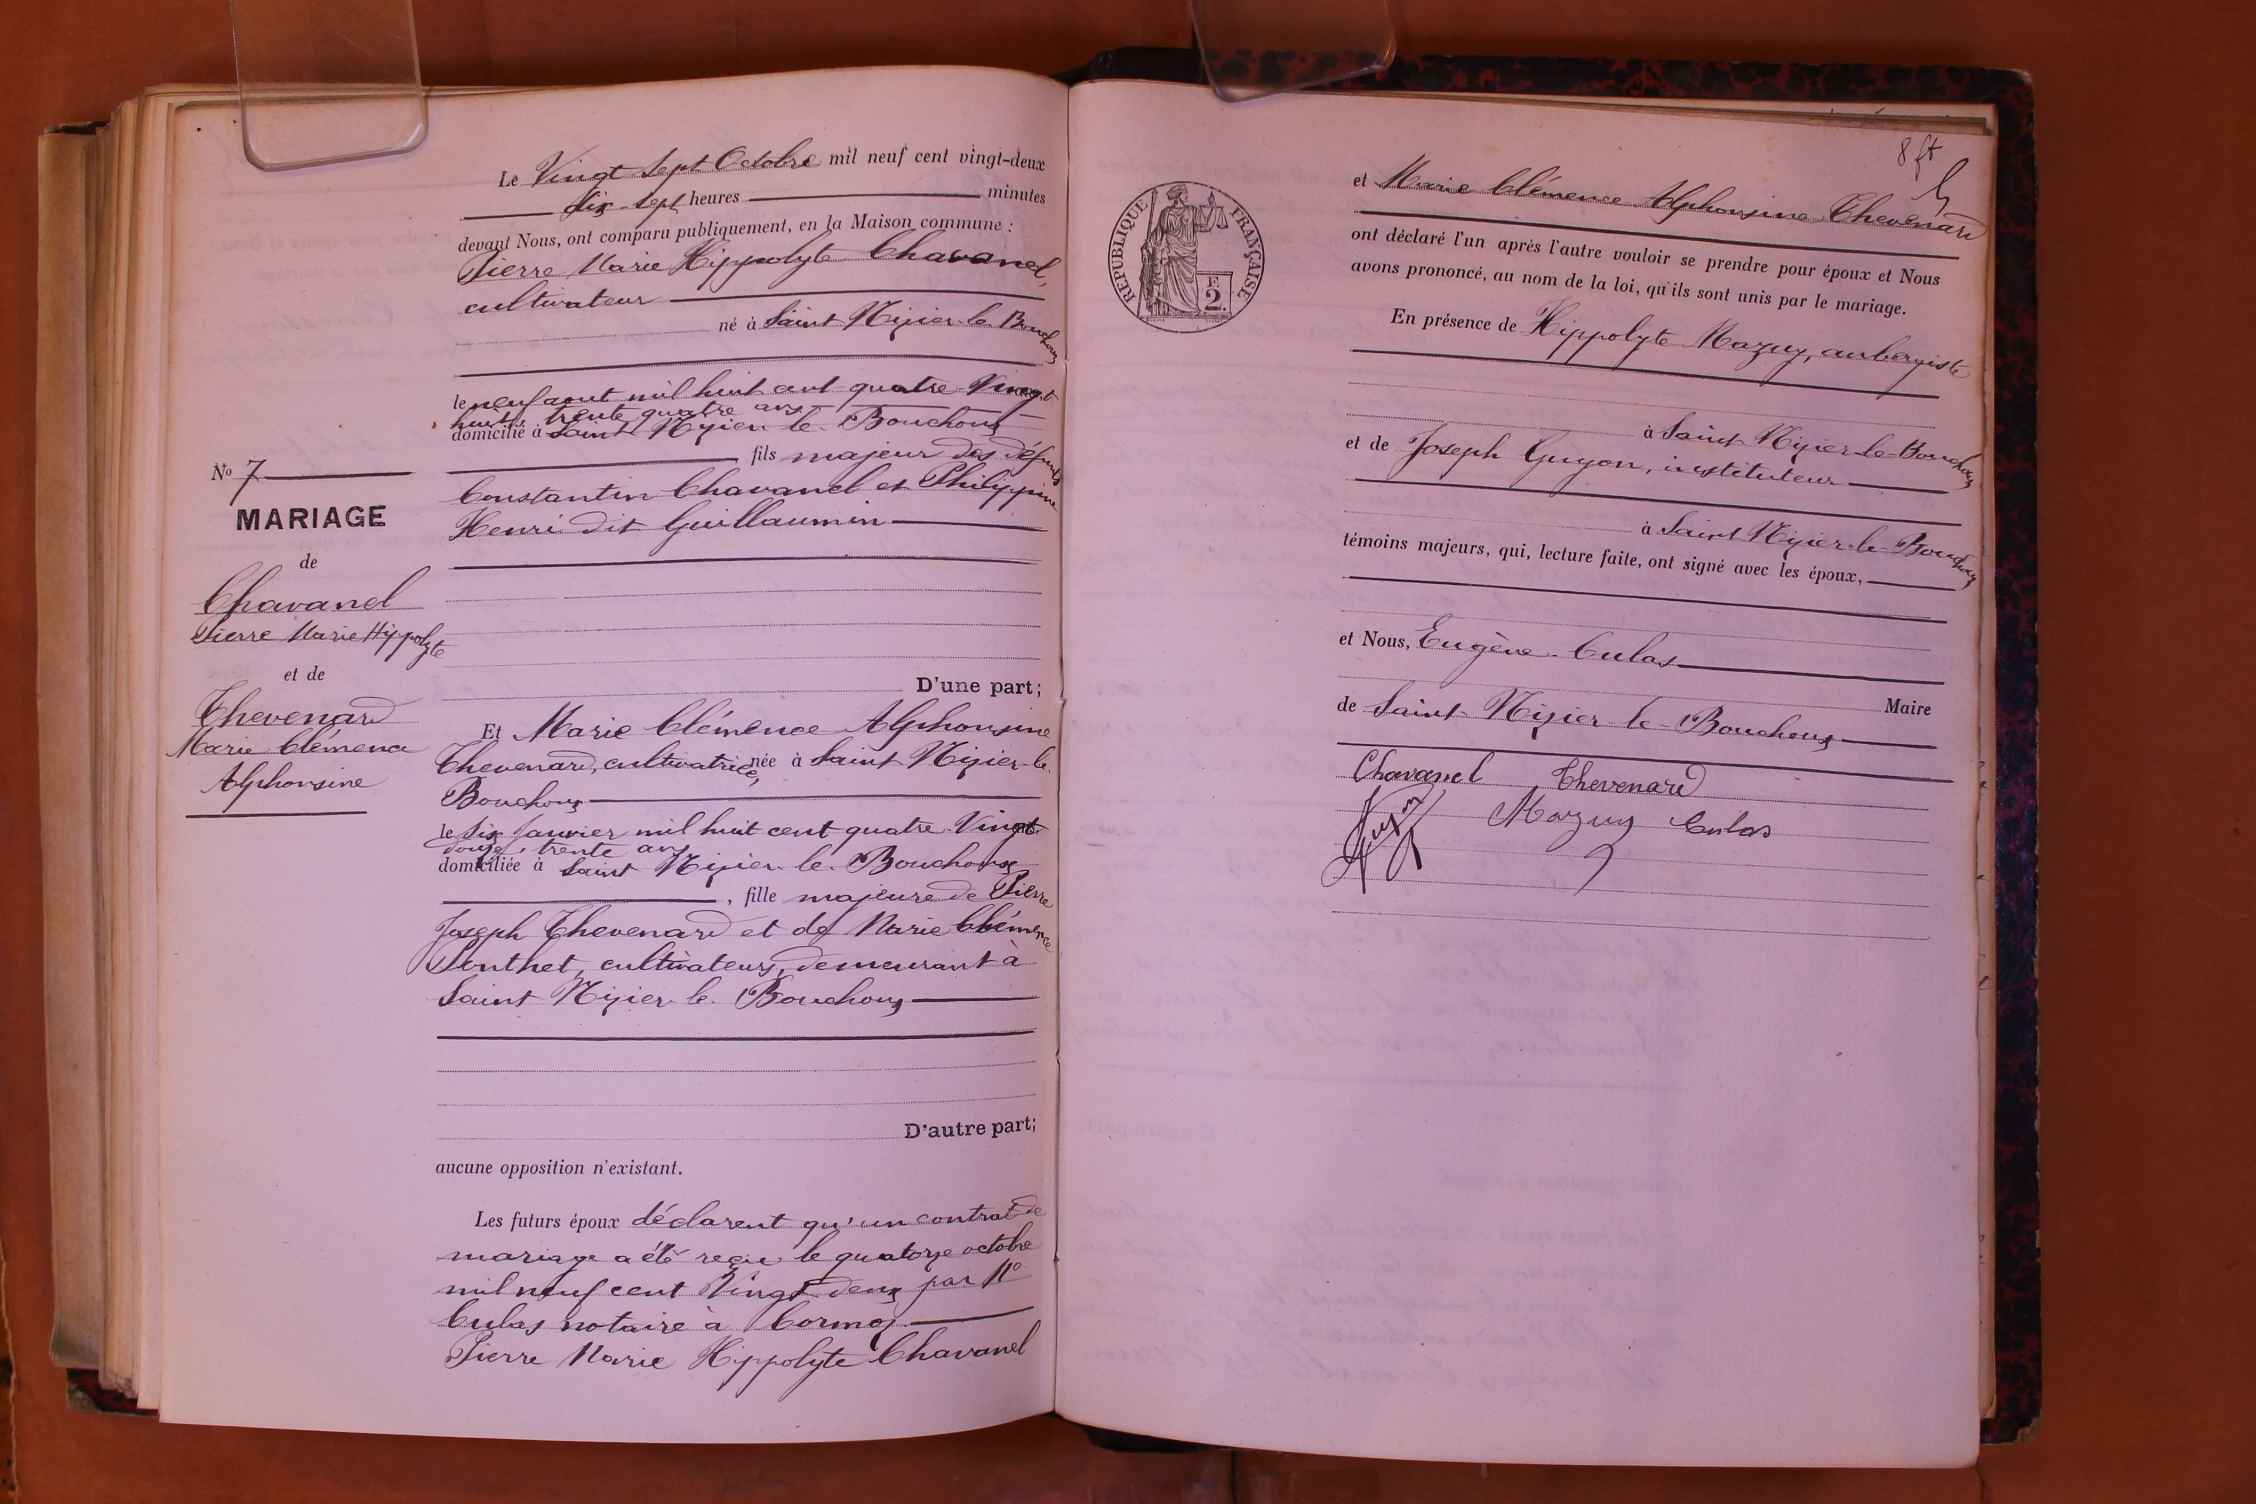 Le Vingt sept Octobre mil neuf cent vingt-deux
dix-sept heures minutes
devant Nous, ont comparu publiquement, en la Maison commune :
Pierre Marie Hippolyte Chavanel,
cultivateur
né à Saint Nizier-le-Bouchoux
le neuf aout mil huit cent quatre-Vingt
huit, trente quatre ans
domicilié à Saint Nizier-le-Bouchoux
fils majeur des défunts
Constantin Chavanel et Philippine
Henri dit Guillaumin
No 7
MARIAGE
de
Chavanel
Pierre Marie Hippolyte
et de
Thevenard
Marie Clémence
Alphonsine
D'une part;
Et Marie Clémence Alphonsine
Thevenard, cultivatrice, née à Saint Nizier-le-
Bouchoux
le six Janvier mil huit cent quatre-Vingt-
douze, trente ans
domiciliée à Saint Nizier-le-Bouchoux
, fille majeure de Pierre
Joseph Thevenard et de Marie Clémence
Ponthet, cultivateurs, demeurant à
Saint Nizier-le-Bouchoux
D'autre part;
aucune opposition n'existant.
Les futurs époux déclarent qu'un contrat de
mariage a été reçu le quatorze octobre
mil neuf cent Vingt deux par Me
Culas notaire à Cormoz.
Pierre Marie Hippolyte Chavanel
8 ft
RÉPUBLIQUE FRANÇAISE
E
2.
et Marie Clémence Alphonsine Thevenard
ont déclaré l'un après l'autre vouloir se prendre pour époux et Nous
avons prononcé, au nom de la loi, qu'ils sont unis par le mariage.
En présence de Hippolyte Mazuy, aubergiste
à Saint Nizier-le-Bouchoux
et de Joseph Guyon, instituteur
à Saint Nizier-le-Bouchoux
témoins majeurs, qui, lecture faite, ont signé avec les époux,
et Nous, Eugène Culas
Maire
de Saint-Nizier-le-Bouchoux
Chavanel Thevenard
Guyon Mazuy Culas